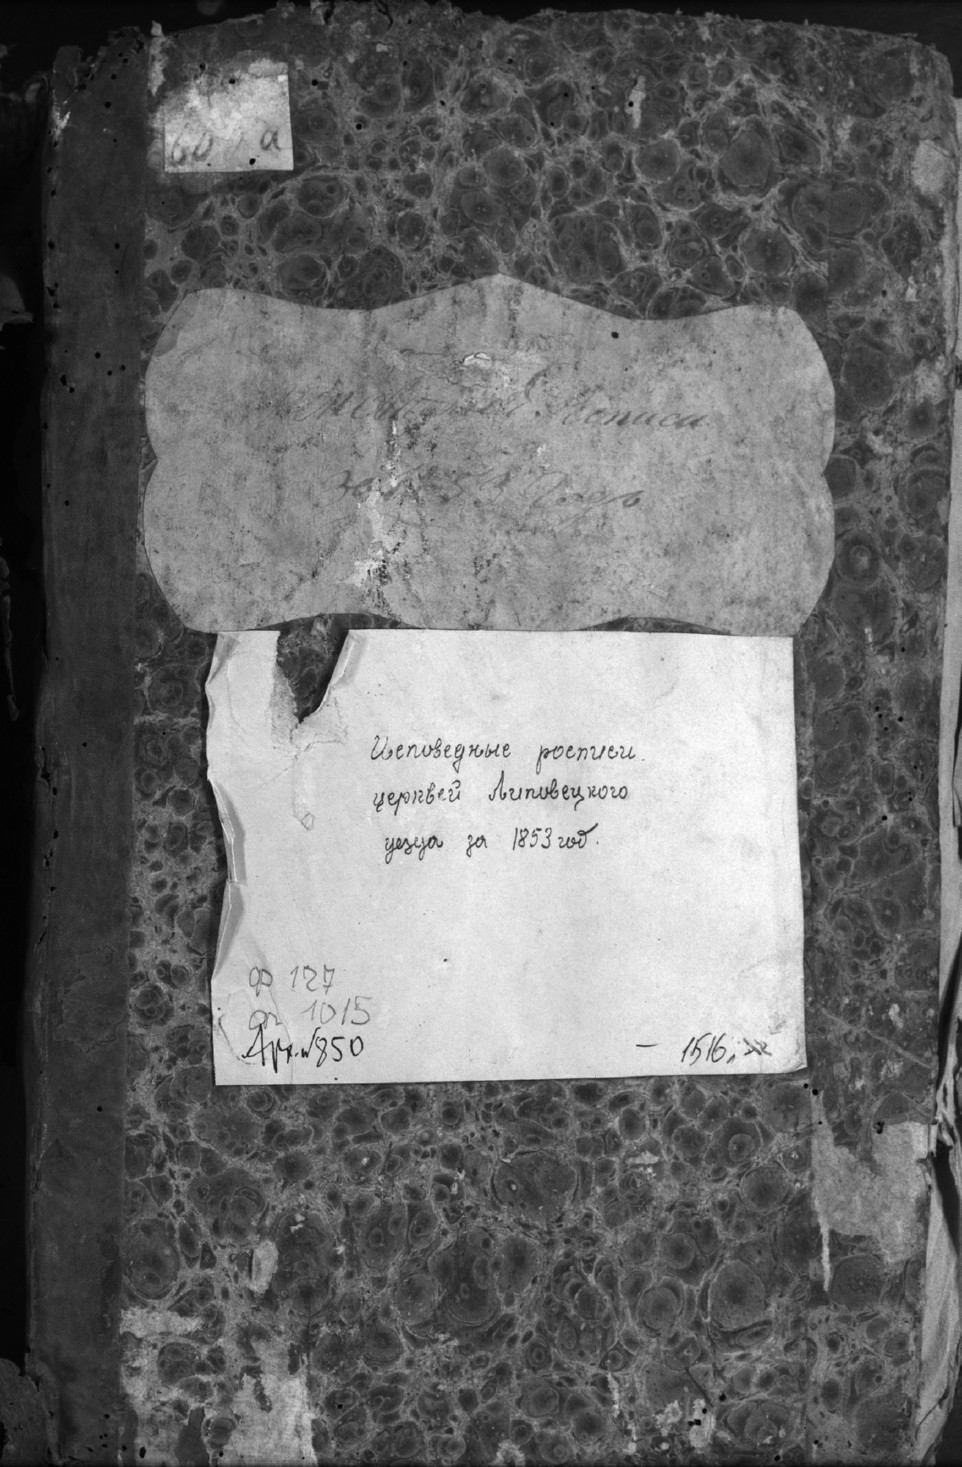 росписи
Исповедные росписи
церквей Липовецкого
уезда за 1853 год.
ф 127
оп 1015
Арх. № 850
– 1516